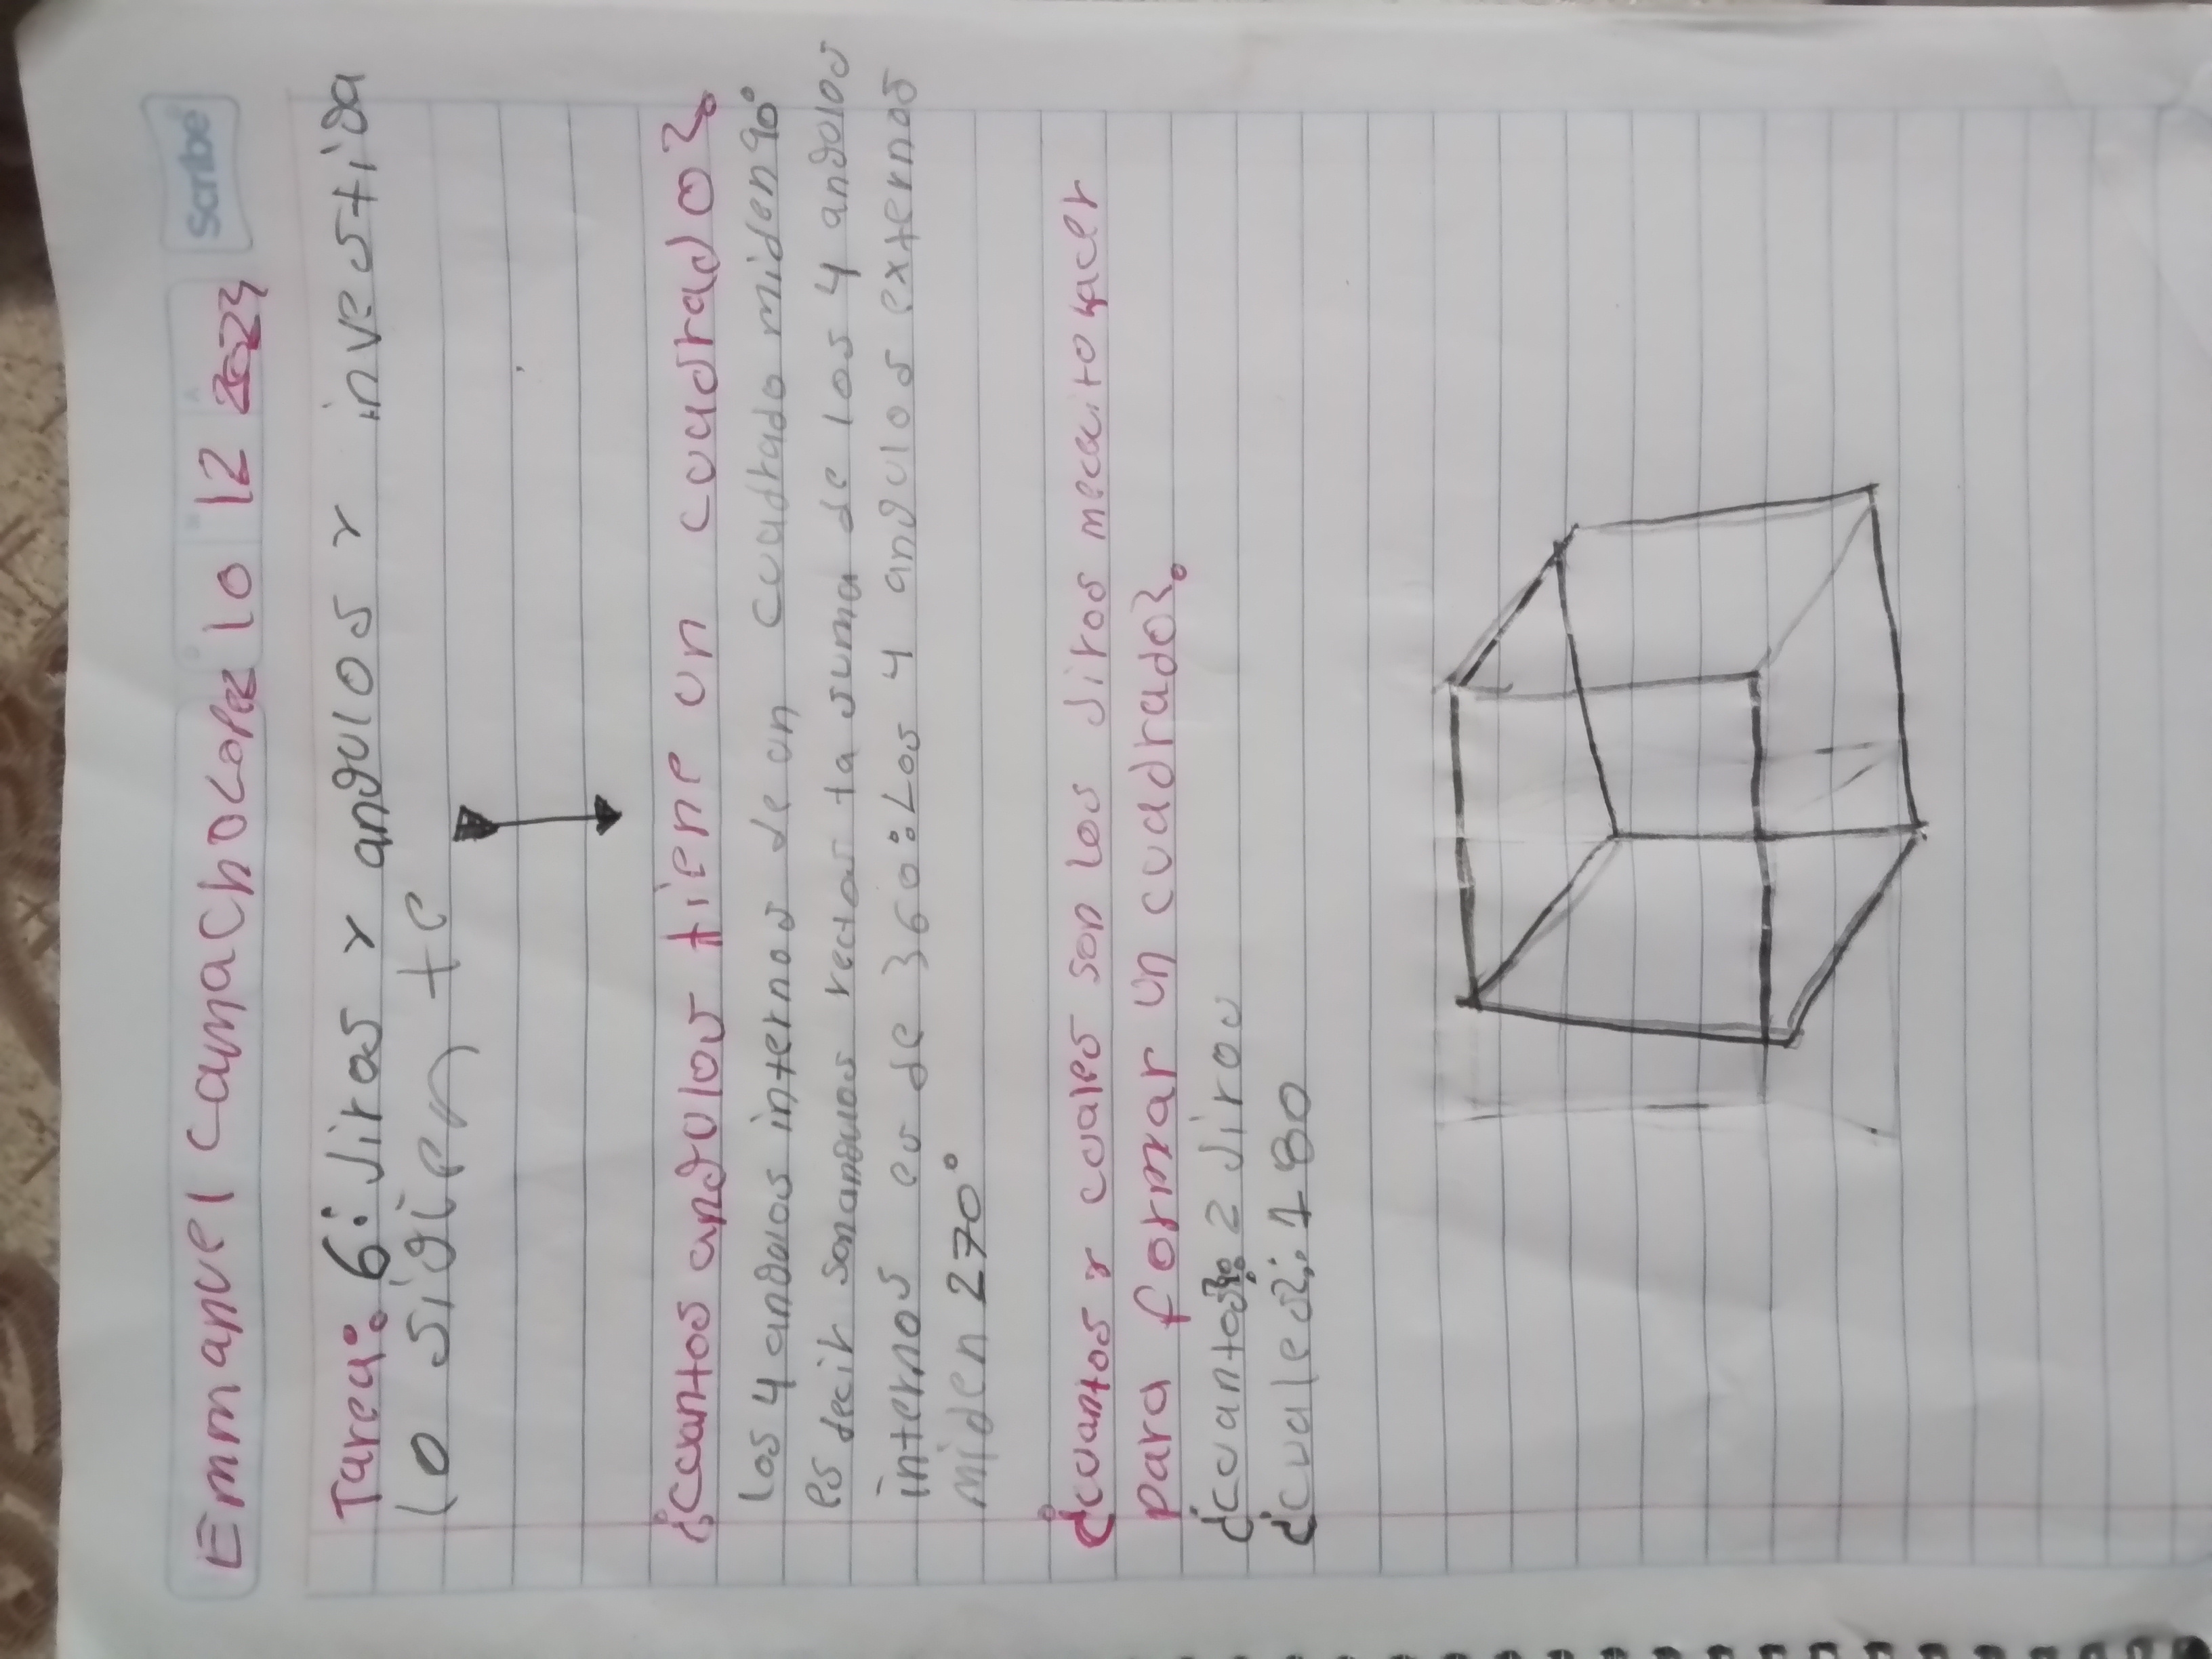 Scribe
Emmanuel Camacho Lopez 10 12 2024
Tarea: 6: Jiros y angulos y investida
lo sigien te
¿cuantos angulos tiene un cuadrado?
los 4 angulos internos de un cuadrado miden 90°
es decir son angulos rectos la suma de los 4 angulos
internos es de 360°. Los 4 angulos externos
miden 270°
¿cuantos y cuales son los Jiros mecacito hacer
para formar un cuadrado?
¿cuantos?: 2 Jiros
¿cuales?: 180